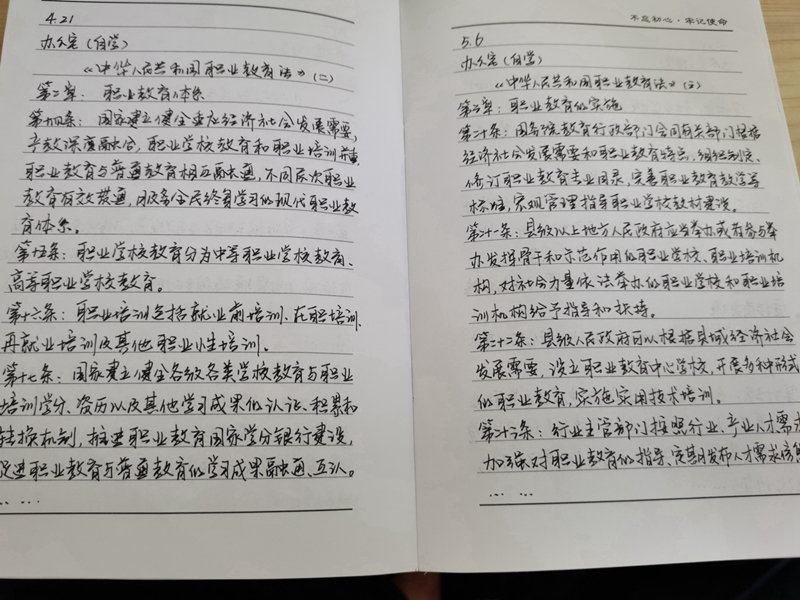 4.21
办公室（自学）
《中华人民共和国职业教育法》（二）
第二章：职业教育体系
第十四条：国家建立健全适应经济社会发展需要，
产教深度融合，职业学校教育和职业培训并重
职业教育与普通教育相互融通，不同层次职业
教育有效贯通，服务全民终身学习的现代职业教
育体系。
第十五条：职业学校教育分为中等职业学校教育、
高等职业学校教育。
第十六条：职业培训包括就业前培训、在职培训、
再就业培训及其他职业性培训。
第十七条：国家建立健全各级各类学校教育与职业
培训学分、资历以及其他学习成果的认证、积累和
转换机制，推进职业教育国家学分银行建设，
促进职业教育与普通教育的学习成果融通、互认。
... ...
不忘初心·牢记使命
5.6
办公室（自学）
《中华人民共和国职业教育法》（三）
第三章：职业教育的实施
第二十条：国务院教育行政部门会同有关部门根据
经济社会发展需要和职业教育特点，组织制定、
修订职业教育专业目录，完善职业教育教学等
标准，宏观管理指导职业学校教材建设。
第二十一条：县级以上地方人民政府应当举办或者参与举
办发挥骨干和示范作用的职业学校、职业培训机
构，对社会力量依法举办的职业学校和职业培
训机构给予指导和扶持。
第二十二条：县级人民政府可以根据县域经济社会
发展需要，设立职业教育中心学校，开展多种形式
的职业教育，实施实用技术培训。
第二十三条：行业主管部门按照行业、产业人才需求
加强对职业教育的指导、定期发布人才需求信息
... ...